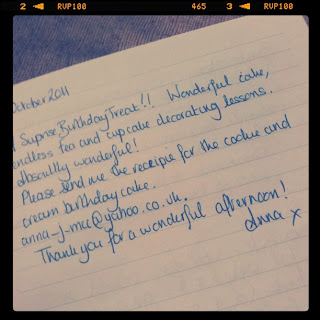 2 RVP100 465 3 RVP100
October 2011
Suprise Birthday Treat!! Wonderful cake,
endless tea and cupcake decorating lessons.
absoultly wonderful!
Please send me the receipie for the cookie and
cream birthday cake.
anna_j_mee@yahoo.co.uk.
Thankyou for a wonderful afternoon!
Anna x